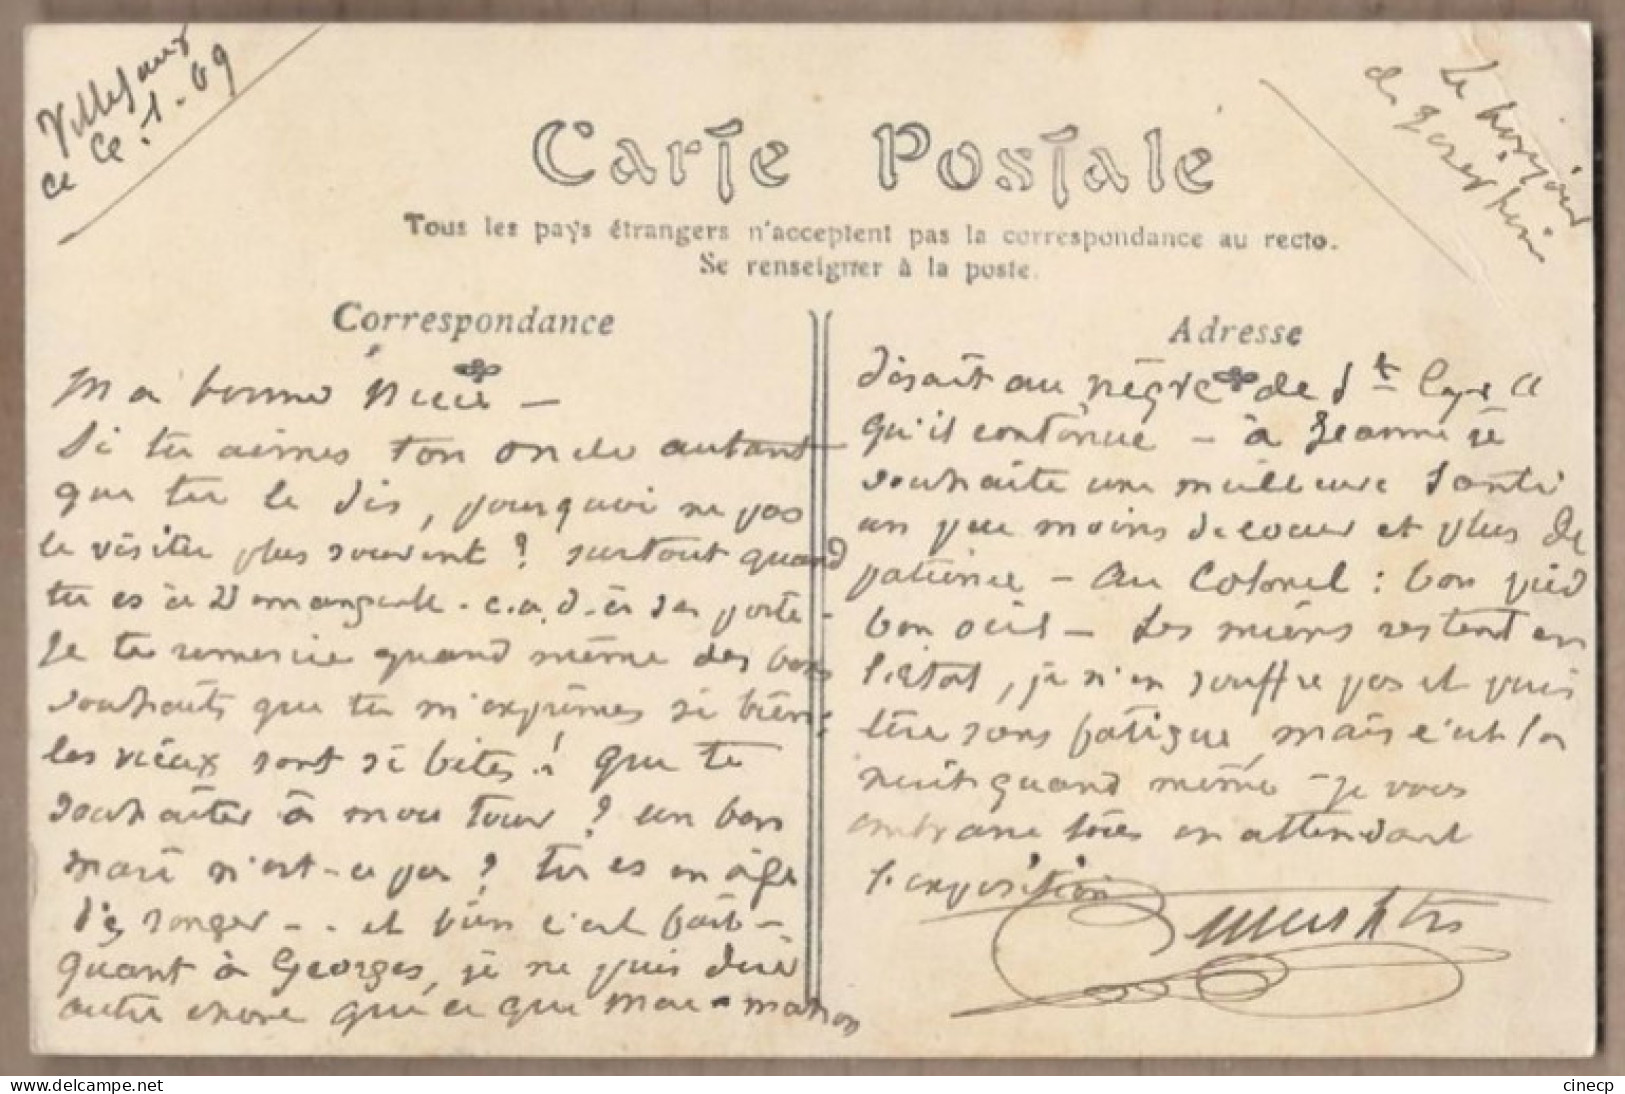 Villesaux
ce Ce. 1. 09
Le bonjour
de
Carte Postale
Tous les pays étrangers n'acceptent pas la correspondance au recto.
Se renseigner à la poste.
Correspondance
Ma bonne Niece —
Si tu aimes ton oncle autant
que tu le dis, pourquoi ne pas
le visiter plus souvent ? surtout quand
tu es à Domangeville . c.a.d. à sa porte -
Je te remercie quand même des bons
souhaits que tu m'exprimes si bien :
les vieux sont si bêtes ! que te
souhaiter à mon tour ? un bon
mari n'est-ce pas ? tu es en âge
d'y songer - . . et bien c'est fait -
quant à Georges, je ne puis dire
autre chose que ce que Mac-mahon
Adresse
disait au nègre de St Cyr
qu'il continue — à Jeanne je
souhaite une meilleure santé
un peu moins de coeur et plus de
patience — Au Colonel : bon pied
bon oeil — Les miens restent en
l'état, je n'en souffre pas et puis
lire sans fatigue mais c'est la
nuit quand même — je vous
embrasse tous en attendant
l'exposition
cinecp